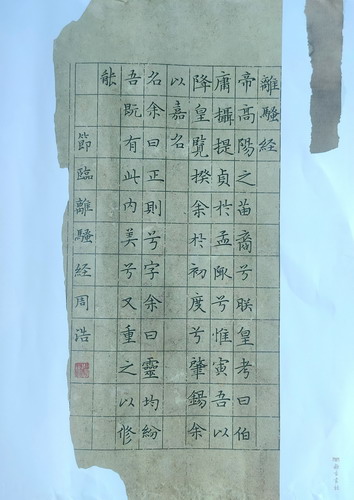 離騷經
帝高陽之苗裔兮朕皇考曰伯
庸攝提貞於孟陬兮惟寅吾以
降皇覽揆余於初度兮肇錫余
以嘉名
名余曰正則兮字余曰靈均紛
吾既有此內美兮又重之以修
能
節臨離騷經周浩